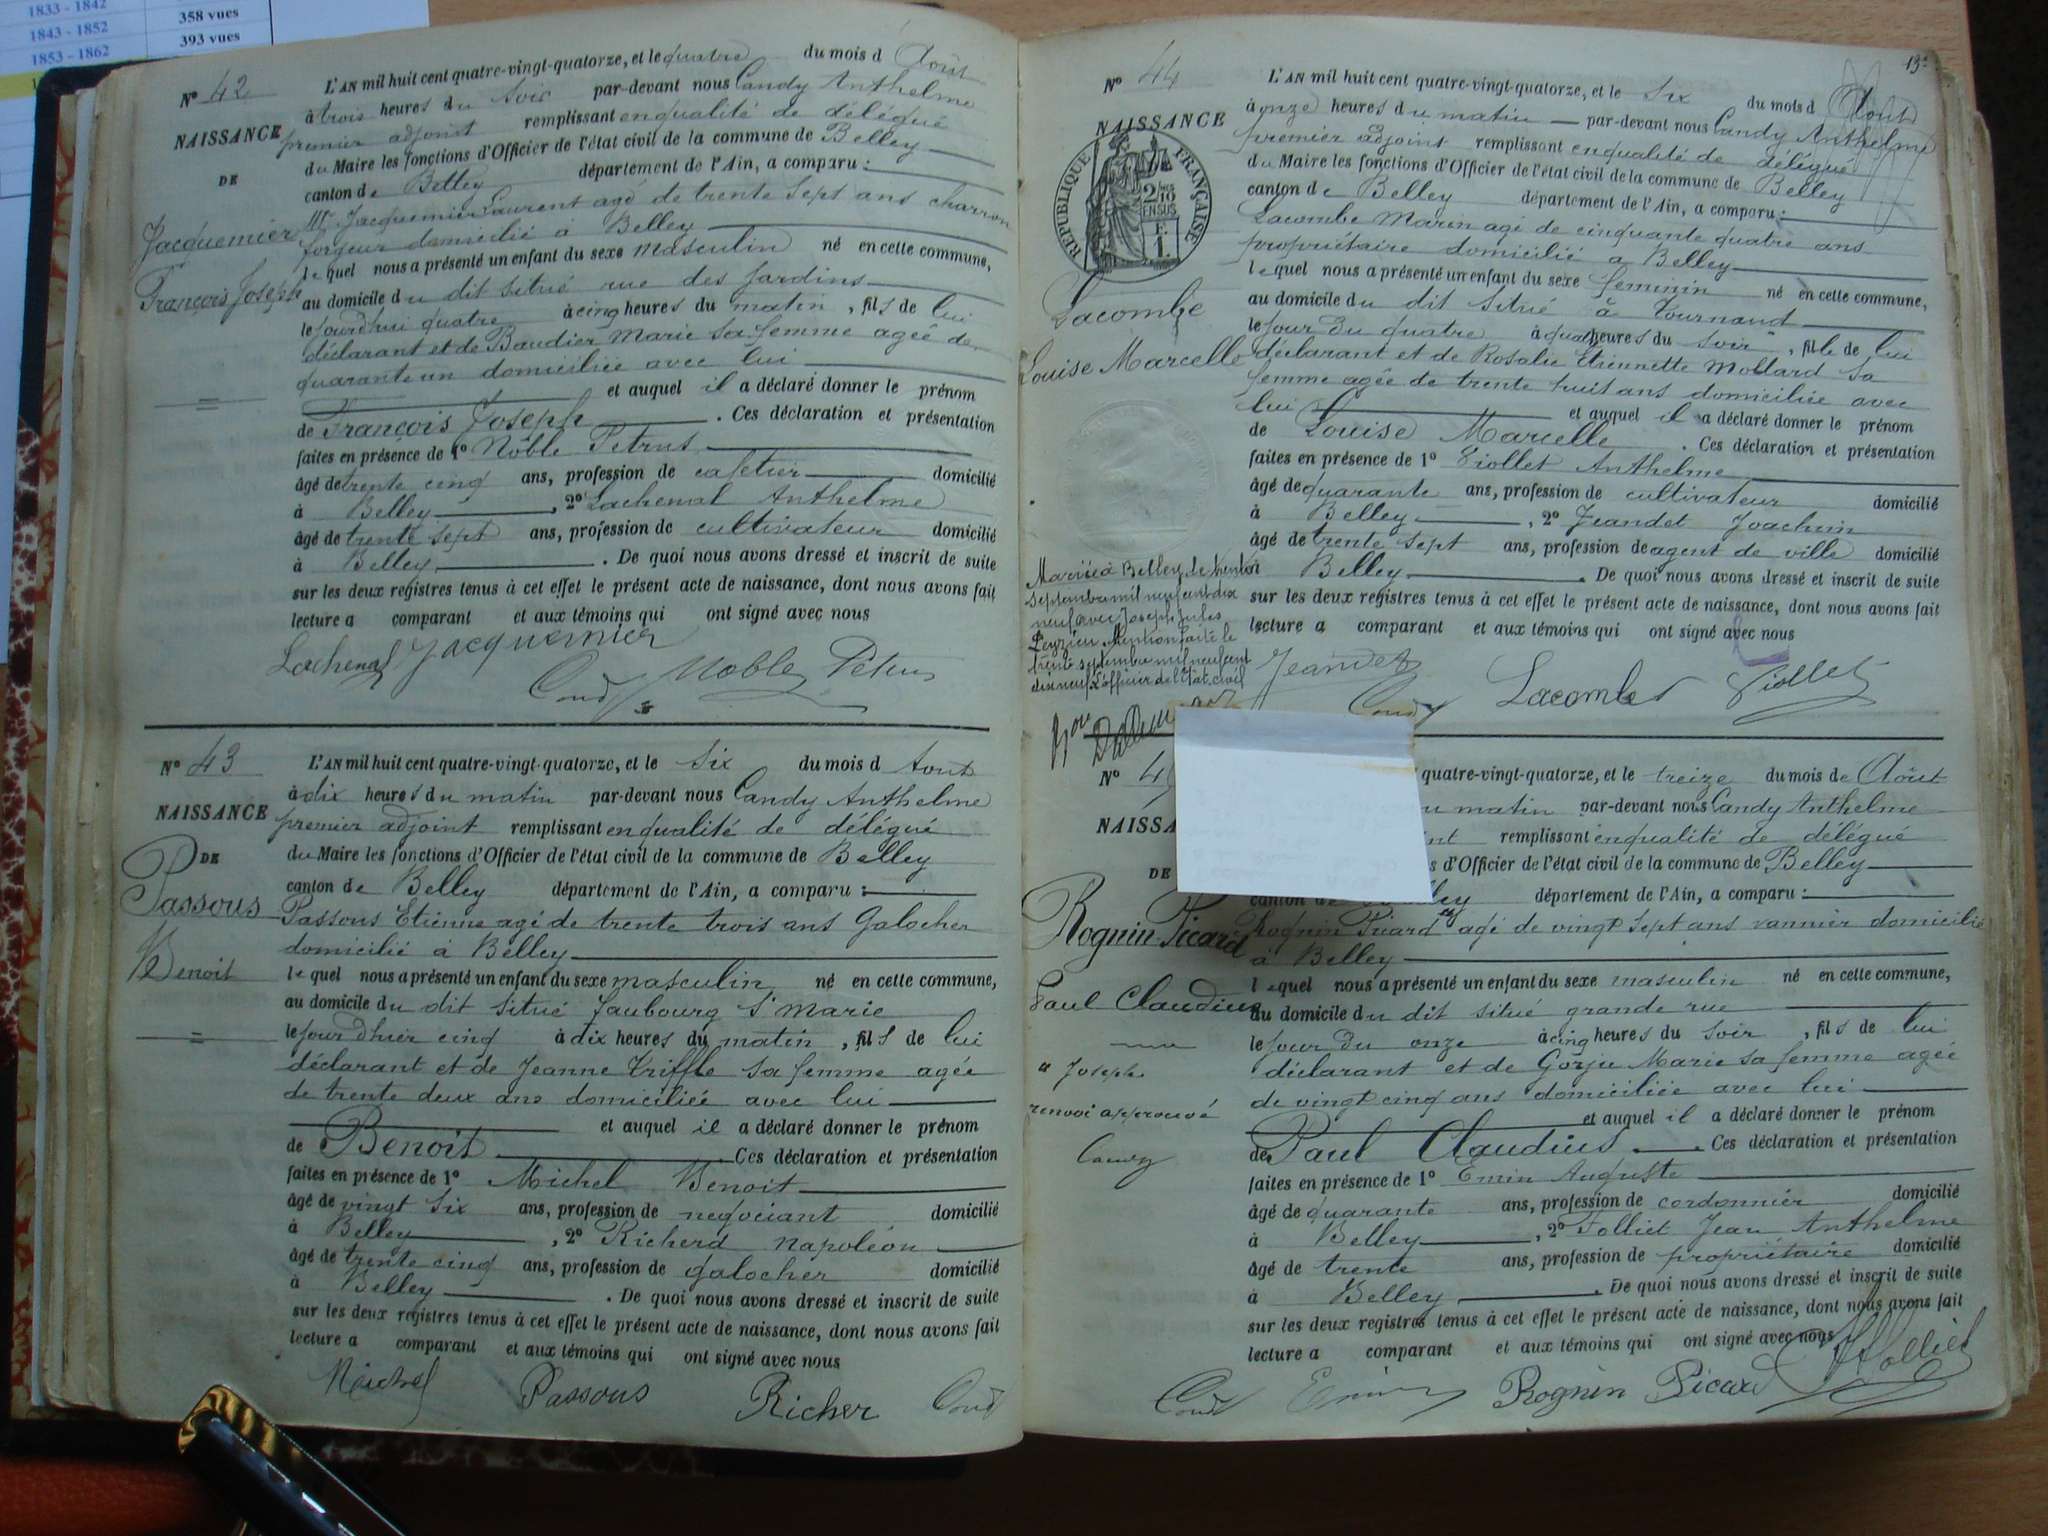 1833 - 1842
358 vues
1843 - 1852
393 vues
1853 - 1862
N° 42
NAISSANCE
DE
Jacquemier
François Joseph
L'AN mil huit cent quatre-vingt-quatorze, et le quatre du mois d Août
à trois heures du soir par-devant nous Candy Anthelme
premier adjoint remplissant en qualité de délégué
du Maire les fonctions d'Officier de l'état civil de la commune de Belley
canton de Belley département de l'Ain, a comparu :
Mr Jacquemier Laurent agé de trente sept ans charron
forgeur domicilié à Belley
lequel nous a présenté un enfant du sexe masculin né en cette commune,
au domicile du dit situé rue des Jardins
le jourdhui quatre à cinq heures du matin, fils de lui
déclarant et de Baudier Marie sa femme agée de
quarante un domiciliée avec lui
et auquel il a déclaré donner le prénom
de François Joseph. Ces déclaration et présentation
faites en présence de 1° Noble Petrus
âgé de trente cinq ans, profession de cafetier domicilié
à Belley, 2° Lachenal Anthelme
âgé de trente sept ans, profession de cultivateur domicilié
à Belley. De quoi nous avons dressé et inscrit de suite
sur les deux registres tenus à cet effet le présent acte de naissance, dont nous avons fait
lecture a comparant et aux témoins qui ont signé avec nous
Lachenal Jacquemier
Candy Noble Petrus
N° 43
NAISSANCE
DE
Passous
Benoit
L'AN mil huit cent quatre-vingt-quatorze, et le six du mois d Aout
à dix heures du matin par-devant nous Candy Anthelme
premier adjoint remplissant en qualité de délégué
du Maire les fonctions d'Officier de l'état civil de la commune de Belley
canton de Belley département de l'Ain, a comparu :
Passous Etienne agé de trente trois ans Galocher
domicilié à Belley
lequel nous a présenté un enfant du sexe masculin né en cette commune,
au domicile du dit situé faubourg St Marie
le jour dhier cinq à dix heures du matin, fils de lui
déclarant et de Jeanne Triffle sa femme agée
de trente deux ans domiciliée avec lui
et auquel il a déclaré donner le prénom
de Benoit. Ces déclaration et présentation
faites en présence de 1° Michel Benoit
âgé de vingt six ans, profession de negociant domicilié
à Belley, 2° Richerd Napoléon
âgé de trente cinq ans, profession de galocher domicilié
à Belley. De quoi nous avons dressé et inscrit de suite
sur les deux registres tenus à cet effet le présent acte de naissance, dont nous avons fait
lecture a comparant et aux témoins qui ont signé avec nous
Michel Passous Richer Candy
N° 44
NAISSANCE
RÉPUBLIQUE FRANÇAISE
2/10
EN SUS
1.
Lacombe
Louise Marcelle
L'AN mil huit cent quatre-vingt-quatorze, et le six du mois d Aout
à onze heures du matin par-devant nous Candy Anthelme
premier adjoint remplissant en qualité de délégué
du Maire les fonctions d'Officier de l'état civil de la commune de Belley
canton de Belley département de l'Ain, a comparu :
Lacombe Marin agé de cinquante quatre ans
propriétaire domicilié a Belley
lequel nous a présenté un enfant du sexe feminin né en cette commune,
au domicile du dit situé à Tournand
le jour du quatre à quatre heures du soir, fille de lui
déclarant et de Rosalie Etiennette Mollard sa
femme agée de trente huit ans domiciliée avec
lui et auquel il a déclaré donner le prénom
de Louise Marcelle. Ces déclaration et présentation
faites en présence de 1° Viollet Anthelme
âgé de quarante ans, profession de cultivateur domicilié
à Belley, 2° Jeandet Joachim
âgé de trente sept ans, profession de agent de ville domicilié
à Belley. De quoi nous avons dressé et inscrit de suite
sur les deux registres tenus à cet effet le présent acte de naissance, dont nous avons fait
lecture a comparant et aux témoins qui ont signé avec nous
Jeandet Candy Lacombe Viollet
Mariée à Belley le
septembre mil neuf cent dix
neuf avec Joseph Jules
Peyzieu Mention faite le
trente septembre mil neuf cent
dix neuf L'officier de l'Etat civil
N° 4
NAISSA
DE
Rognin Picard
Paul Claudius
a Joseph
renvoi approuvé
Candy
quatre-vingt-quatorze, et le treize du mois de Août
u matin par-devant nous Candy Anthelme
int remplissant en qualité de délégué
s d'Officier de l'état civil de la commune de Belley
canton de Belley département de l'Ain, a comparu :
Rognin Picard agé de vingt sept ans vannier domicilié
à Belley
lequel nous a présenté un enfant du sexe masculin né en cette commune,
au domicile du dit situé grande rue
le jour du onze à cinq heures du soir, fils de lui
déclarant et de Gorju Marie sa femme agée
de vingt cinq ans domiciliée avec lui
et auquel il a déclaré donner le prénom
de Paul Claudius. Ces déclaration et présentation
faites en présence de 1° Emin Auguste
âgé de quarante ans, profession de cordonnier domicilié
à Belley, 2° Folliet Jean Anthelme
âgé de trente ans, profession de propriétaire domicilié
à Belley. De quoi nous avons dressé et inscrit de suite
sur les deux registres tenus à cet effet le présent acte de naissance, dont nous avons fait
lecture a comparant et aux témoins qui ont signé avec nous
Candy Emin Rognin Picard Folliet